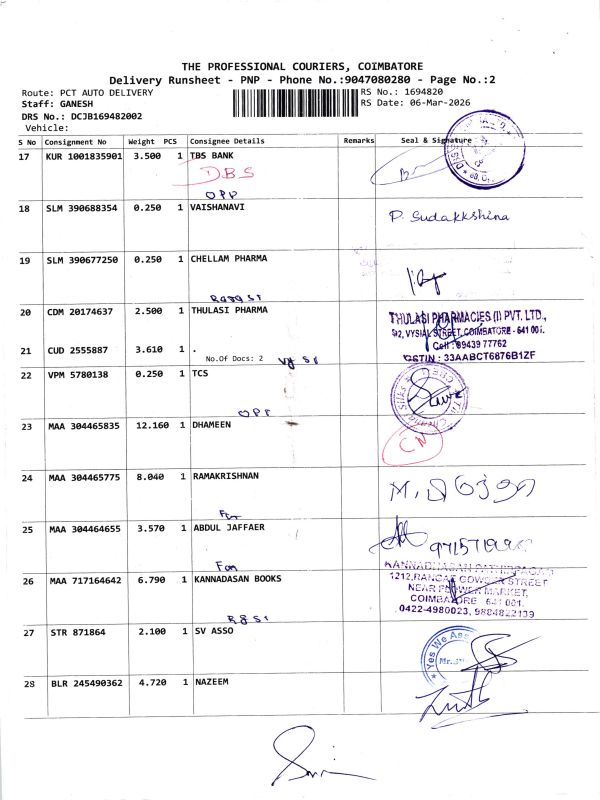 THE PROFESSIONAL COURIERS, COIMBATORE
Delivery Runsheet - PNP - Phone No.:9047080280 - Page No.:2
Route: PCT AUTO DELIVERY
RS No.: 1694820
Staff: GANESH
RS Date: 06-Mar-2026
DRS No.: DCJB169482002
Vehicle:
S No Consignment No Weight PCS Consignee Details Remarks Seal & Signature
17 KUR 1001835901 3.500 1 TBS BANK
DBS
OPP
18 SLM 390688354 0.250 1 VAISHANAVI
P. Sudakkshina
19 SLM 390677250 0.250 1 CHELLAM PHARMA
20 CDM 20174637 2.500 1 THULASI PHARMA
THULASI PHARMACIES (I) PVT. LTD.,
92, VYSIAL STREET, COIMBATORE - 641 001.
Cell : 89439 77762
21 CUD 2555887 3.610 1 .
No.Of Docs: 2
GSTIN : 33AABCT6876B1ZF
22 VPM 5780138 0.250 1 TCS
OPP
23 MAA 304465835 12.160 1 DHAMEEN
CN
24 MAA 304465775 8.040 1 RAMAKRISHNAN
25 MAA 304464655 3.570 1 ABDUL JAFFAER
26 MAA 717164642 6.790 1 KANNADASAN BOOKS
1212, RANGAI GOWDER STREET
NEAR FLOWER MARKET,
COIMBATORE 641 001.
0422-4980023, 9884822139
27 STR 871864 2.100 1 SV ASSO
Yes We Ass
Mr.
28 BLR 245490362 4.720 1 NAZEEM